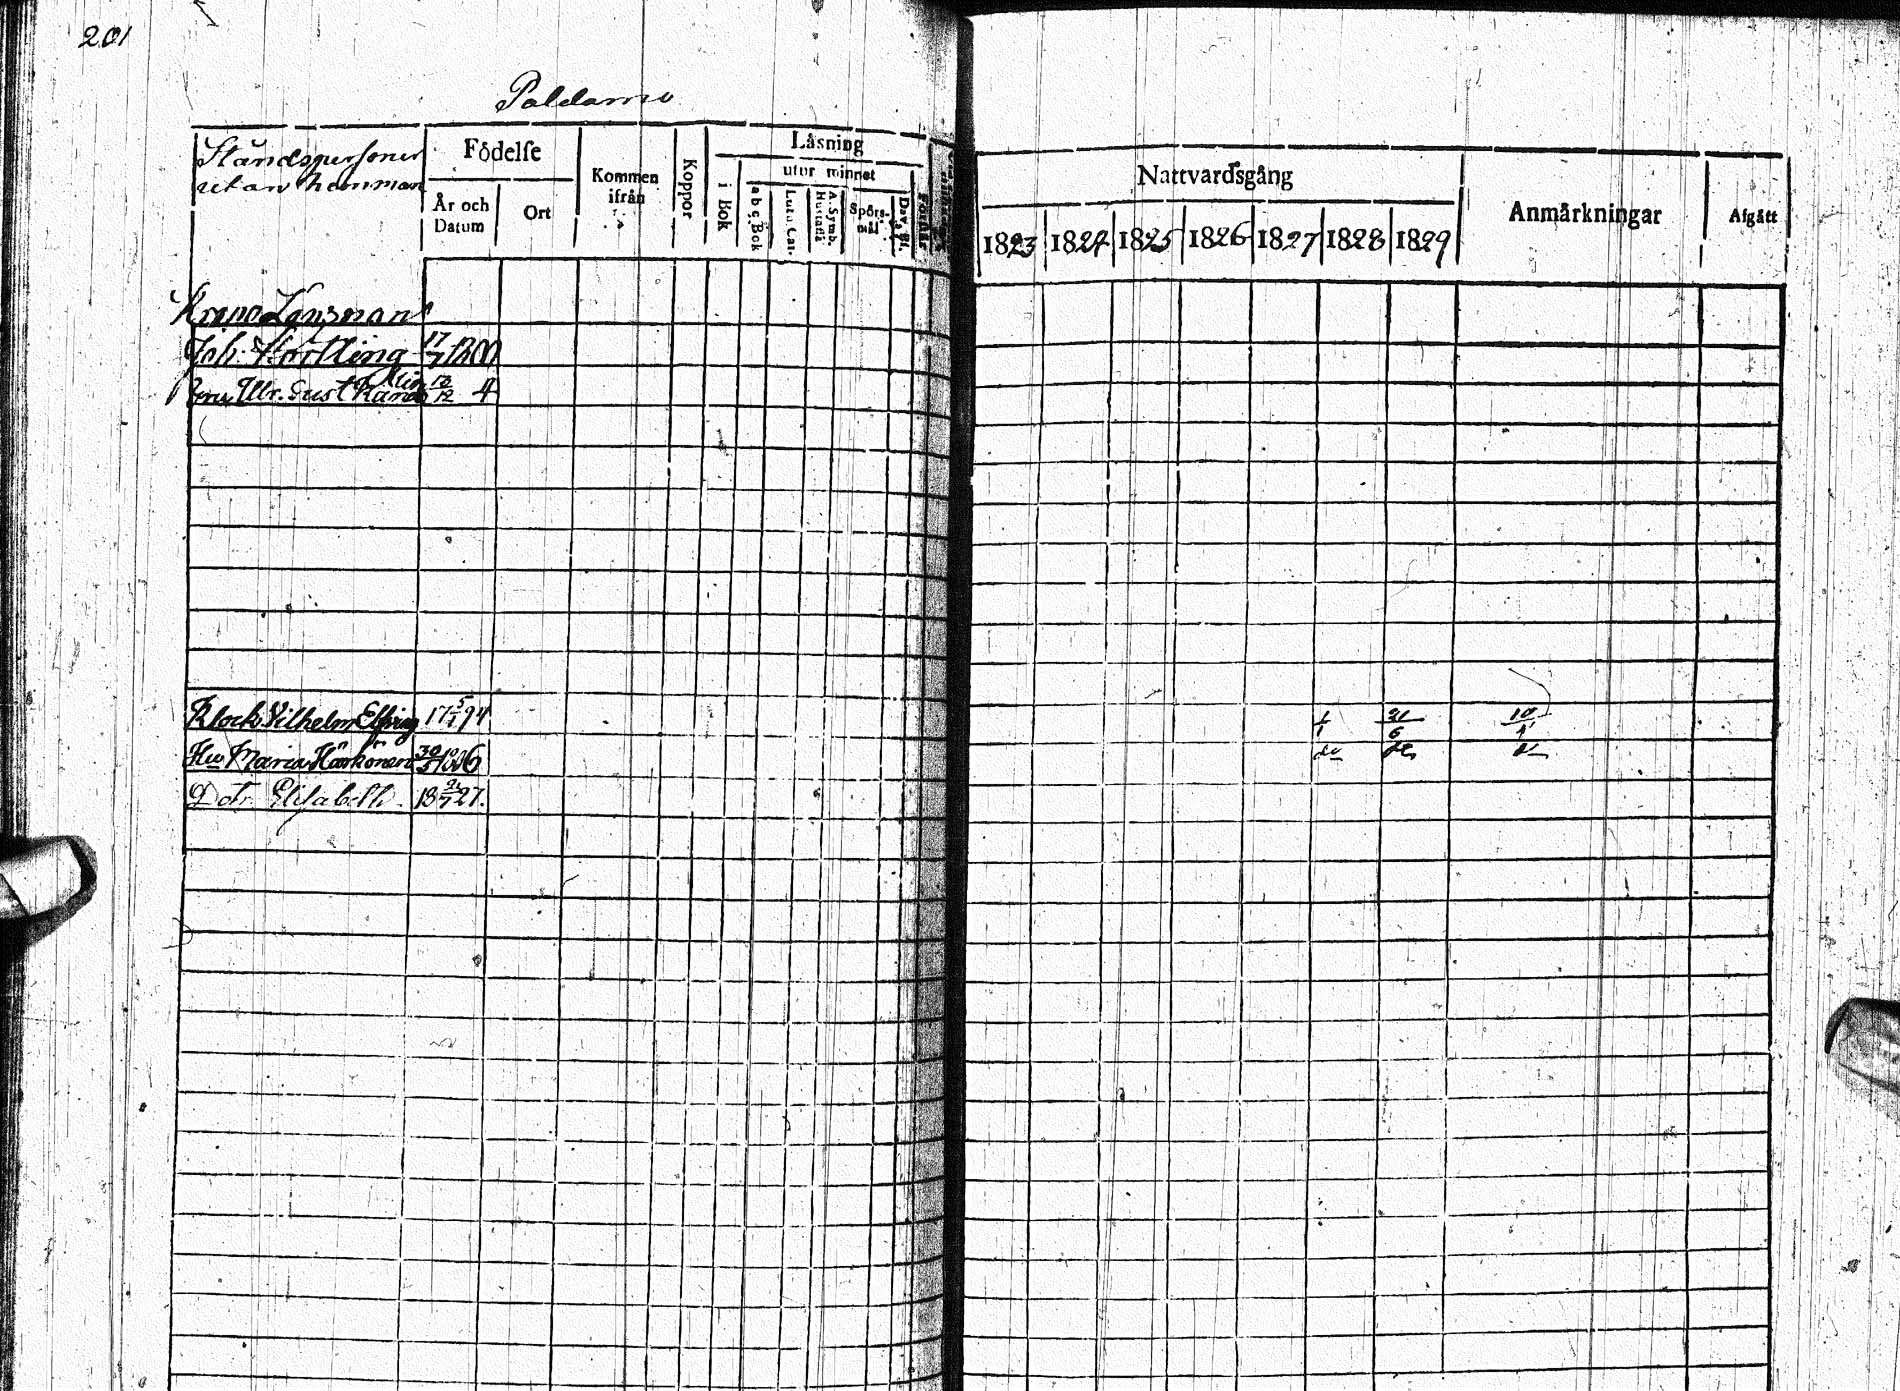 201
Paldamo
Ståndspersoner
utan hemman
Födelse
År och
Datum
Ort
Kommen
ifrån
Koppor
Läsning
i Bok
utur minnet
a b c Bok
Luth. Cat.
A. Symb.
Hustafla
Spörs-
mål
Dav. Ps.
Förstår
Nattvardsgång
1823 1824 1825 1826 1827 1828 1829
Anmärkningar
Afgått
Krono Länsman
Joh. 17/7 1800
Fru Ulr. Gust. 10/12 4
Klock. Vilhelm Elfving 17 5/1 94 1/1 21/6 10/4
Hu Maria Härkönen 30/5 1806 do do d
Dotr. Elisabeth 18 21/7 27.